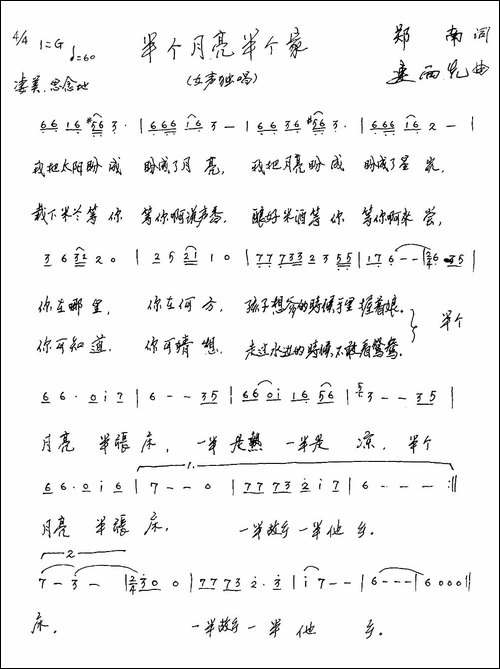 半个月亮半个家
4/4 1=G ♩=60
(女声独唱)
郑 南 词
曲
凄美、思念地
6 6 1 6 #5 6 3 · | 6 6 6 1 6 3 – | 6 6 3 6 #5 6 3 · | 6 6 6 1 6 2 – |
我把太阳盼成 盼成了月亮, 我把月亮盼成 盼成了星
栽下米兰等你 等你啊满 香, 酿好米酒等你 等你啊来尝,
3 6 3 2 2 0 | 2 5 2 1 1 0 | 7 7 7 3 3 2 3 5 5 | 1 7 6 – – | 2/4 6 · 3 5 |
你在哪里, 你在何方, 孩子想爷的時候手里握着娘。
半个
你可知道, 你可猜想, 走过水边的時候,不敢看鸳鸯。
6 6 · 0 i 7 | 6 – – 3 5 | 6 6 0 i 1 6 5 6 | 3 – – 3 5 |
月亮 半張床, 一半是熱 一半是 凉, 半个
1.
6 6 · 0 i 6 | 7 – – 0 | 7 7 7 3 2 i 7 | 6 – – – :||
月亮 半張床, 一半故乡一半他乡.
2
7 – 3 – | 2/4 3 0 0 | 7 7 7 3 2 · 3 | i 7 – – | 6 – – – | 6 0 0 0 ||
床, 一半故乡一半 他 乡.